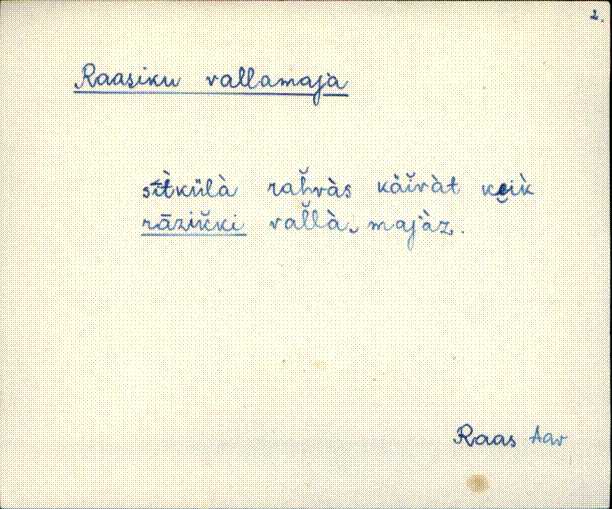 2.
Raasiku vallamaja
sītkülà rah̆vàs käĭvàt kẹik̀
rāzik̆ki val̆là‿majàz.
Raas Aav